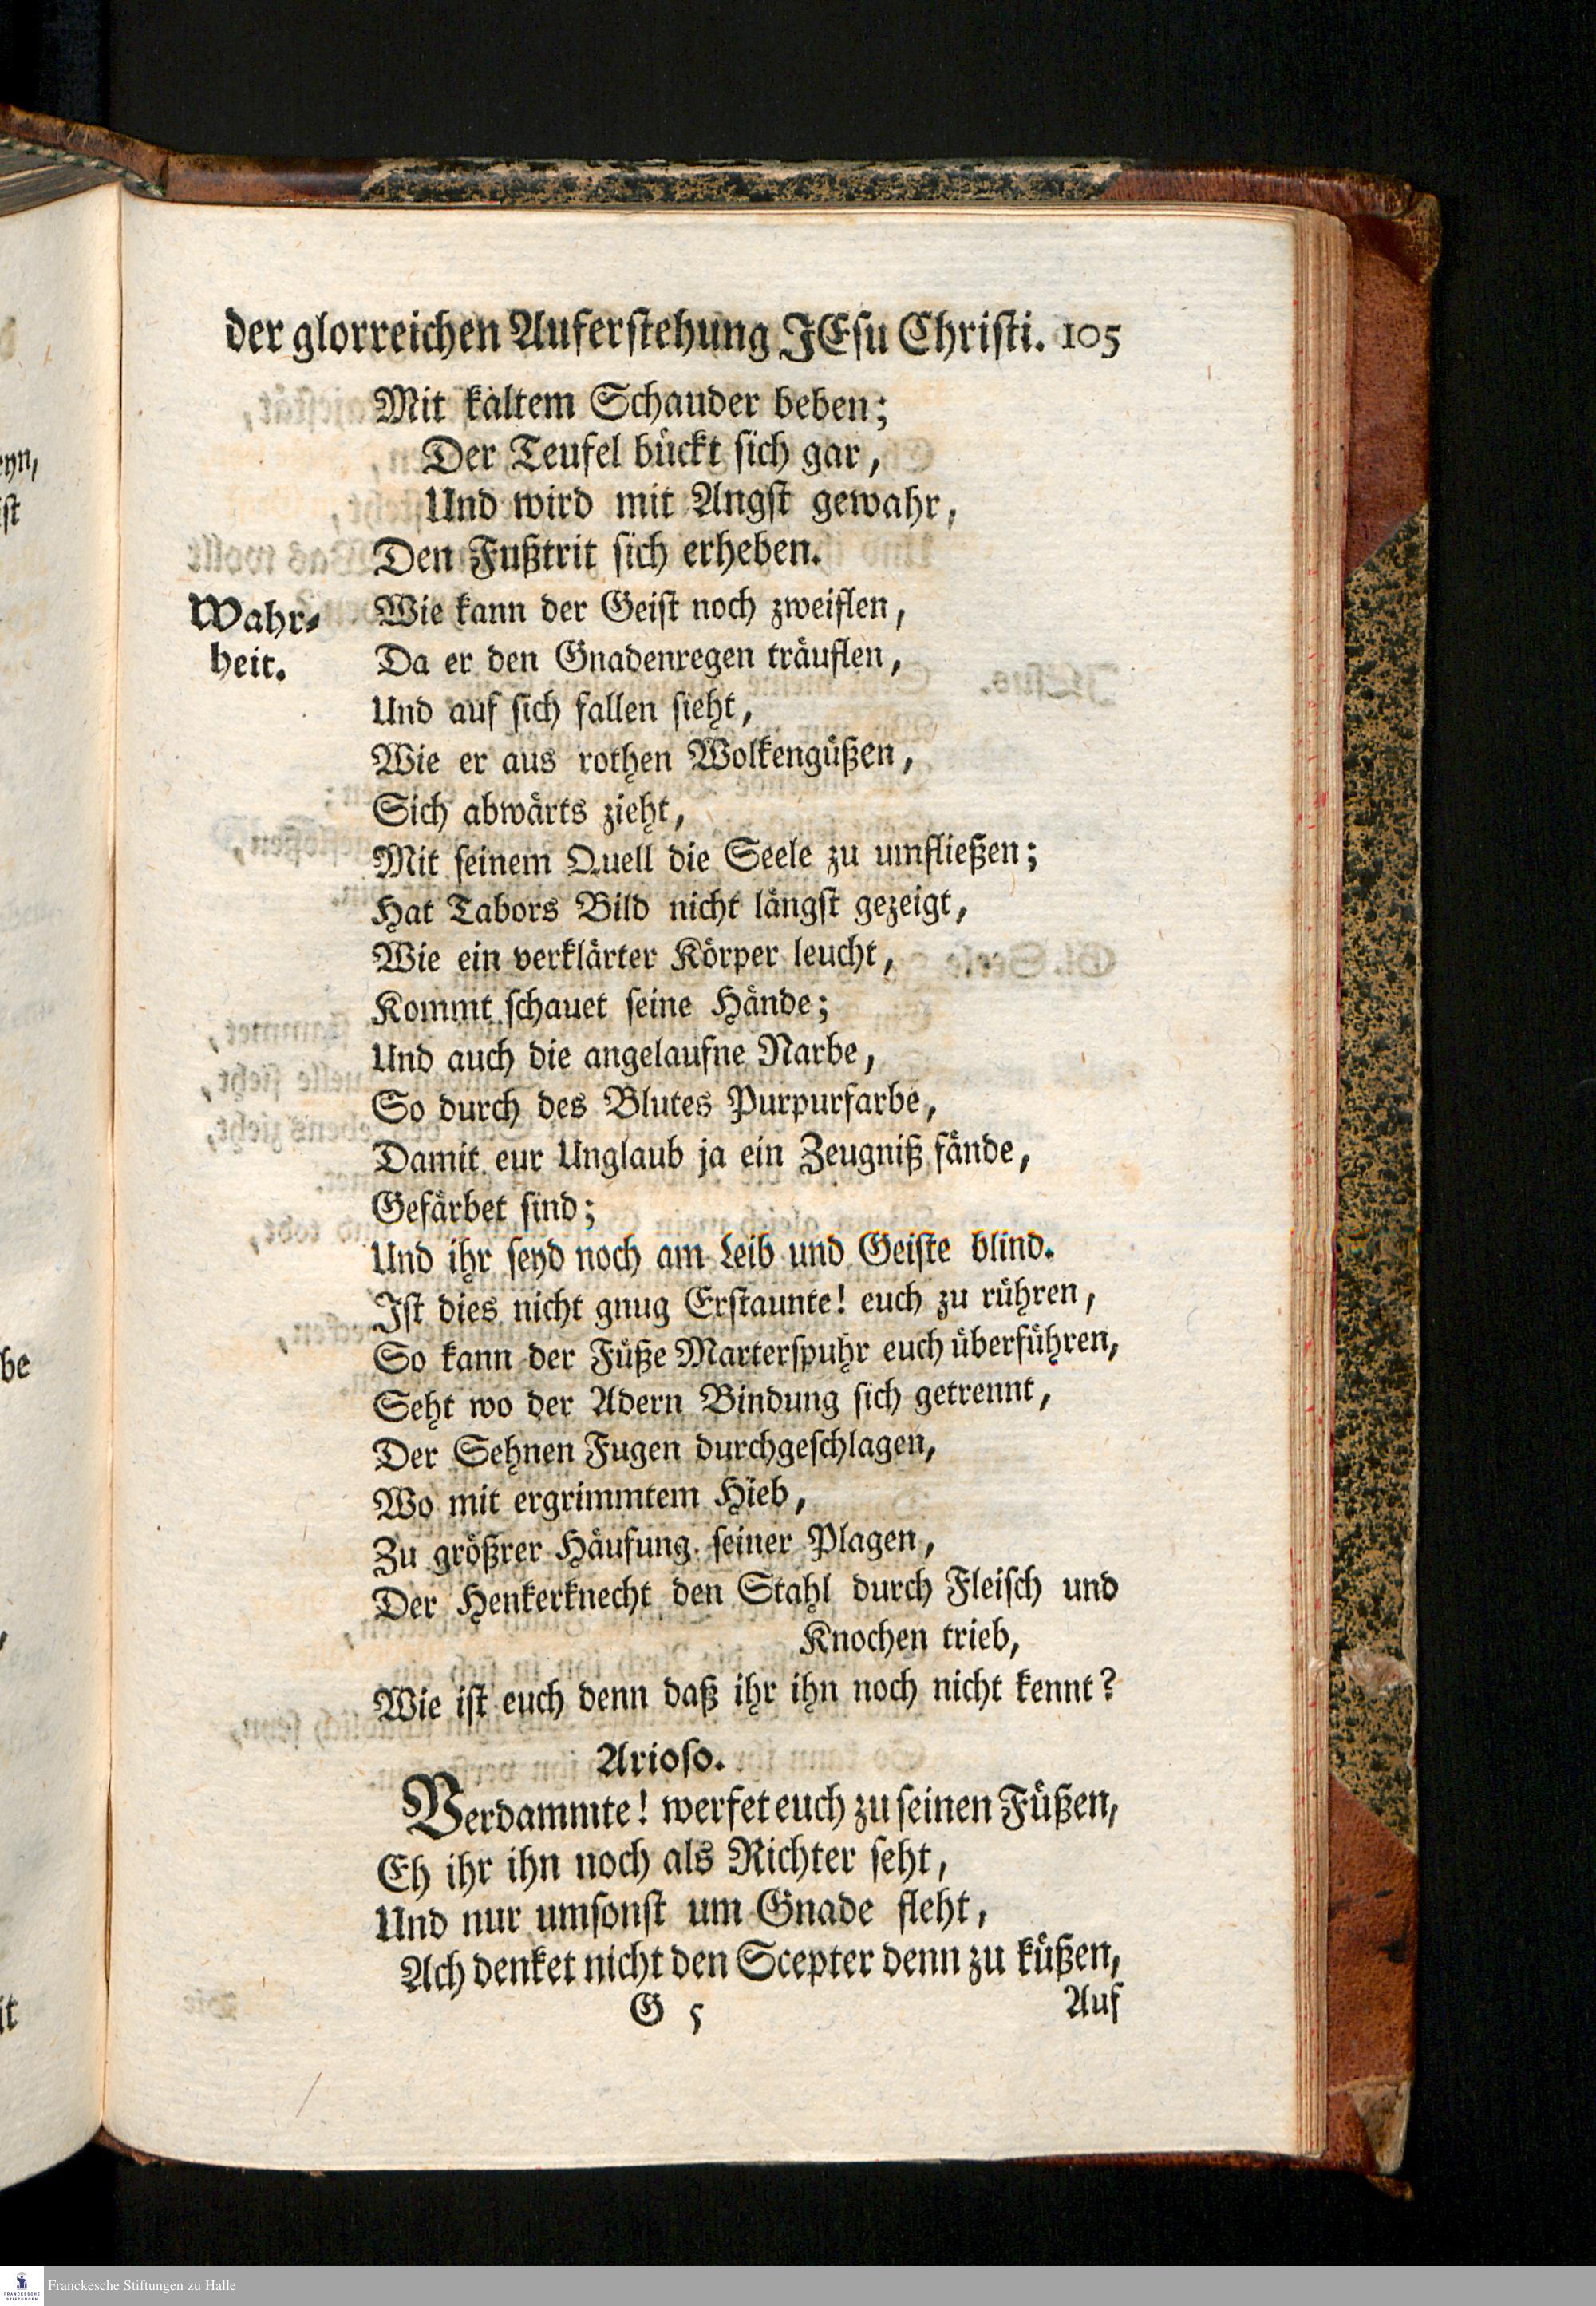 der glorreichen Auferstehung JEsu Christi. 105
Mit kaltem Schauder beben;
Der Teufel bückt sich gar,
Und wird mit Angst gewahr,
Den Fußtrit sich erheben.
Wahr-
heit.
Wie kann der Geist noch zweiflen,
Da er den Gnadenregen träuflen,
Und auf sich fallen sieht,
Wie er aus rothen Wolkengüßen,
Sich abwärts zieht,
Mit seinem Quell die Seele zu umfließen;
Hat Tabors Bild nicht längst gezeigt,
Wie ein verklärter Körper leucht,
Kommt schauet seine Hände;
Und auch die angelaufne Narbe,
So durch des Blutes Purpurfarbe,
Damit eur Unglaub ja ein Zeugniß fände,
Gefärbet sind;
Und ihr seyd noch am Leib und Geiste blind.
Ist dies nicht gnug Erstaunte! euch zu rühren,
So kann der Füße Marterspuhr euch überführen,
Seht wo der Adern Bindung sich getrennt,
Der Sehnen Fugen durchgeschlagen,
Wo mit ergrimmtem Hieb,
Zu größrer Häufung seiner Plagen,
Der Henkerknecht den Stahl durch Fleisch und
Knochen trieb,
Wie ist euch denn daß ihr ihn noch nicht kennt?
Arioso.
Verdammte! werfet euch zu seinen Füßen,
Eh ihr ihn noch als Richter seht,
Und nur umsonst um Gnade fleht,
Ach denket nicht den Scepter denn zu küßen,
G 5
Auf
Franckesche Stiftungen zu Halle